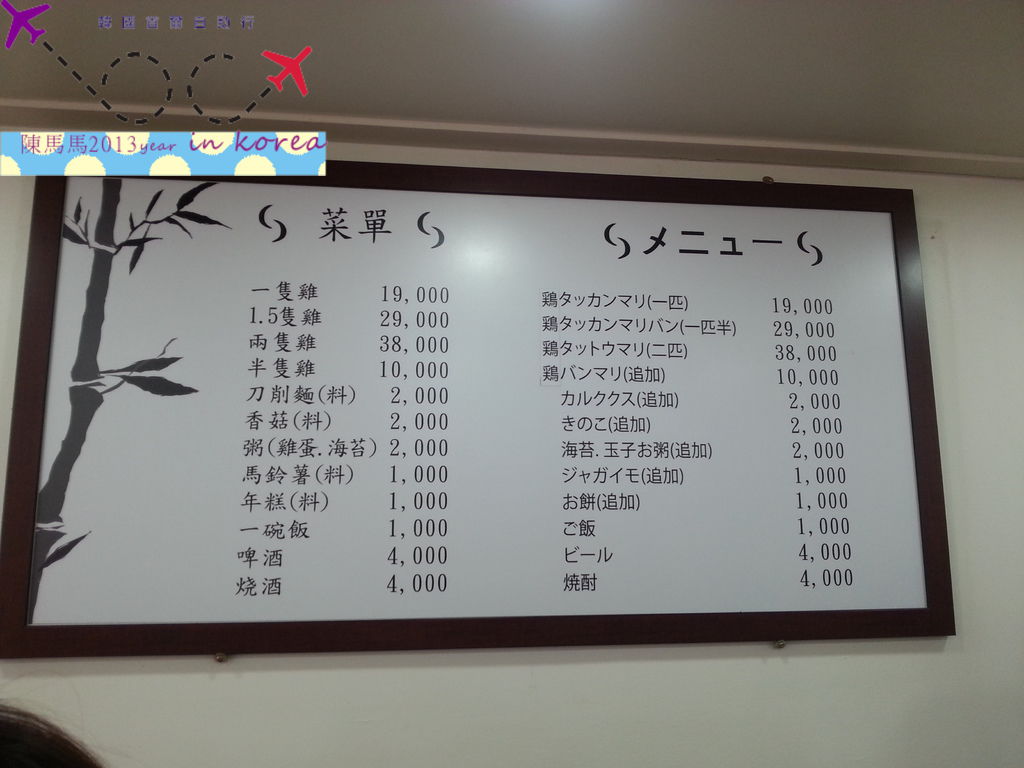 韓國首爾自助行
陳馬馬2013year in korea
菜單
一隻雞 19,000
1.5隻雞 29,000
兩隻雞 38,000
半隻雞 10,000
刀削麵(料) 2,000
香菇(料) 2,000
粥(雞蛋.海苔) 2,000
馬鈴薯(料) 1,000
年糕(料) 1,000
一碗飯 1,000
啤酒 4,000
烧酒 4,000
メニュー
鶏タッカンマリ(一匹) 19,000
鶏タッカンマリバン(一匹半) 29,000
鶏タットウマリ(二匹) 38,000
鶏バンマリ(追加) 10,000
カルククス(追加) 2,000
きのこ(追加) 2,000
海苔.玉子お粥(追加) 2,000
ジャガイモ(追加) 1,000
お餅(追加) 1,000
ご飯 1,000
ビール 4,000
焼酎 4,000